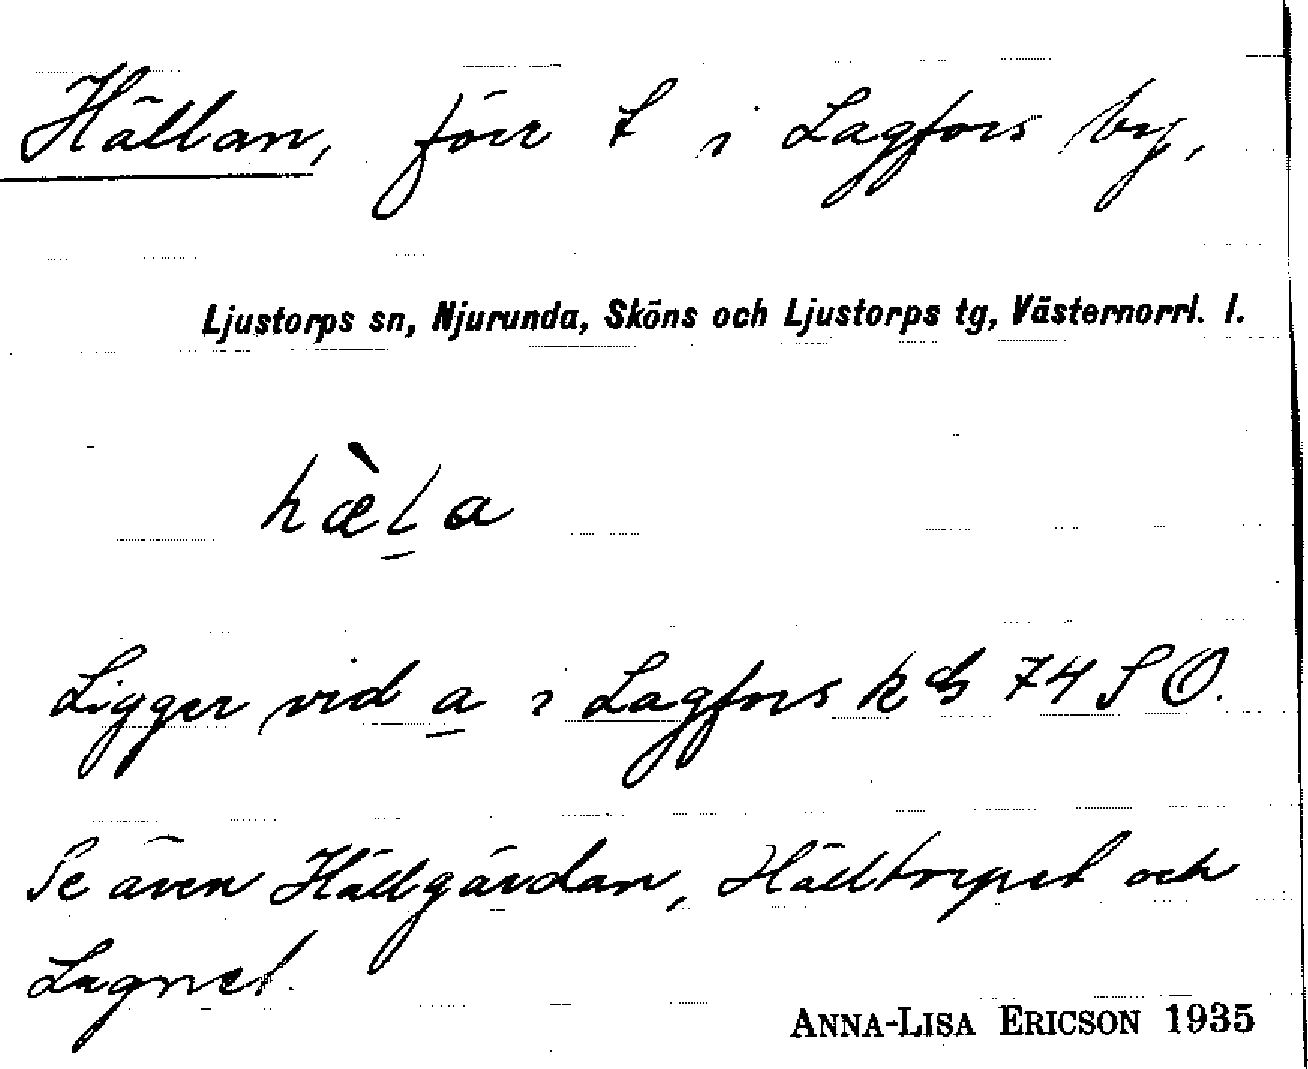 Hällan, förr t i Lagfors by,
Ljustorps sn, Njurunda, Sköns och Ljustorps tg, Västernorrl. l.
hæ̀l̲a
Ligger vid a i Lagfors k bl 74 S O.
Se även Hällgärdan, Hälltorpet och
Lugnet.
ANNA-LISA ERICSON 1935